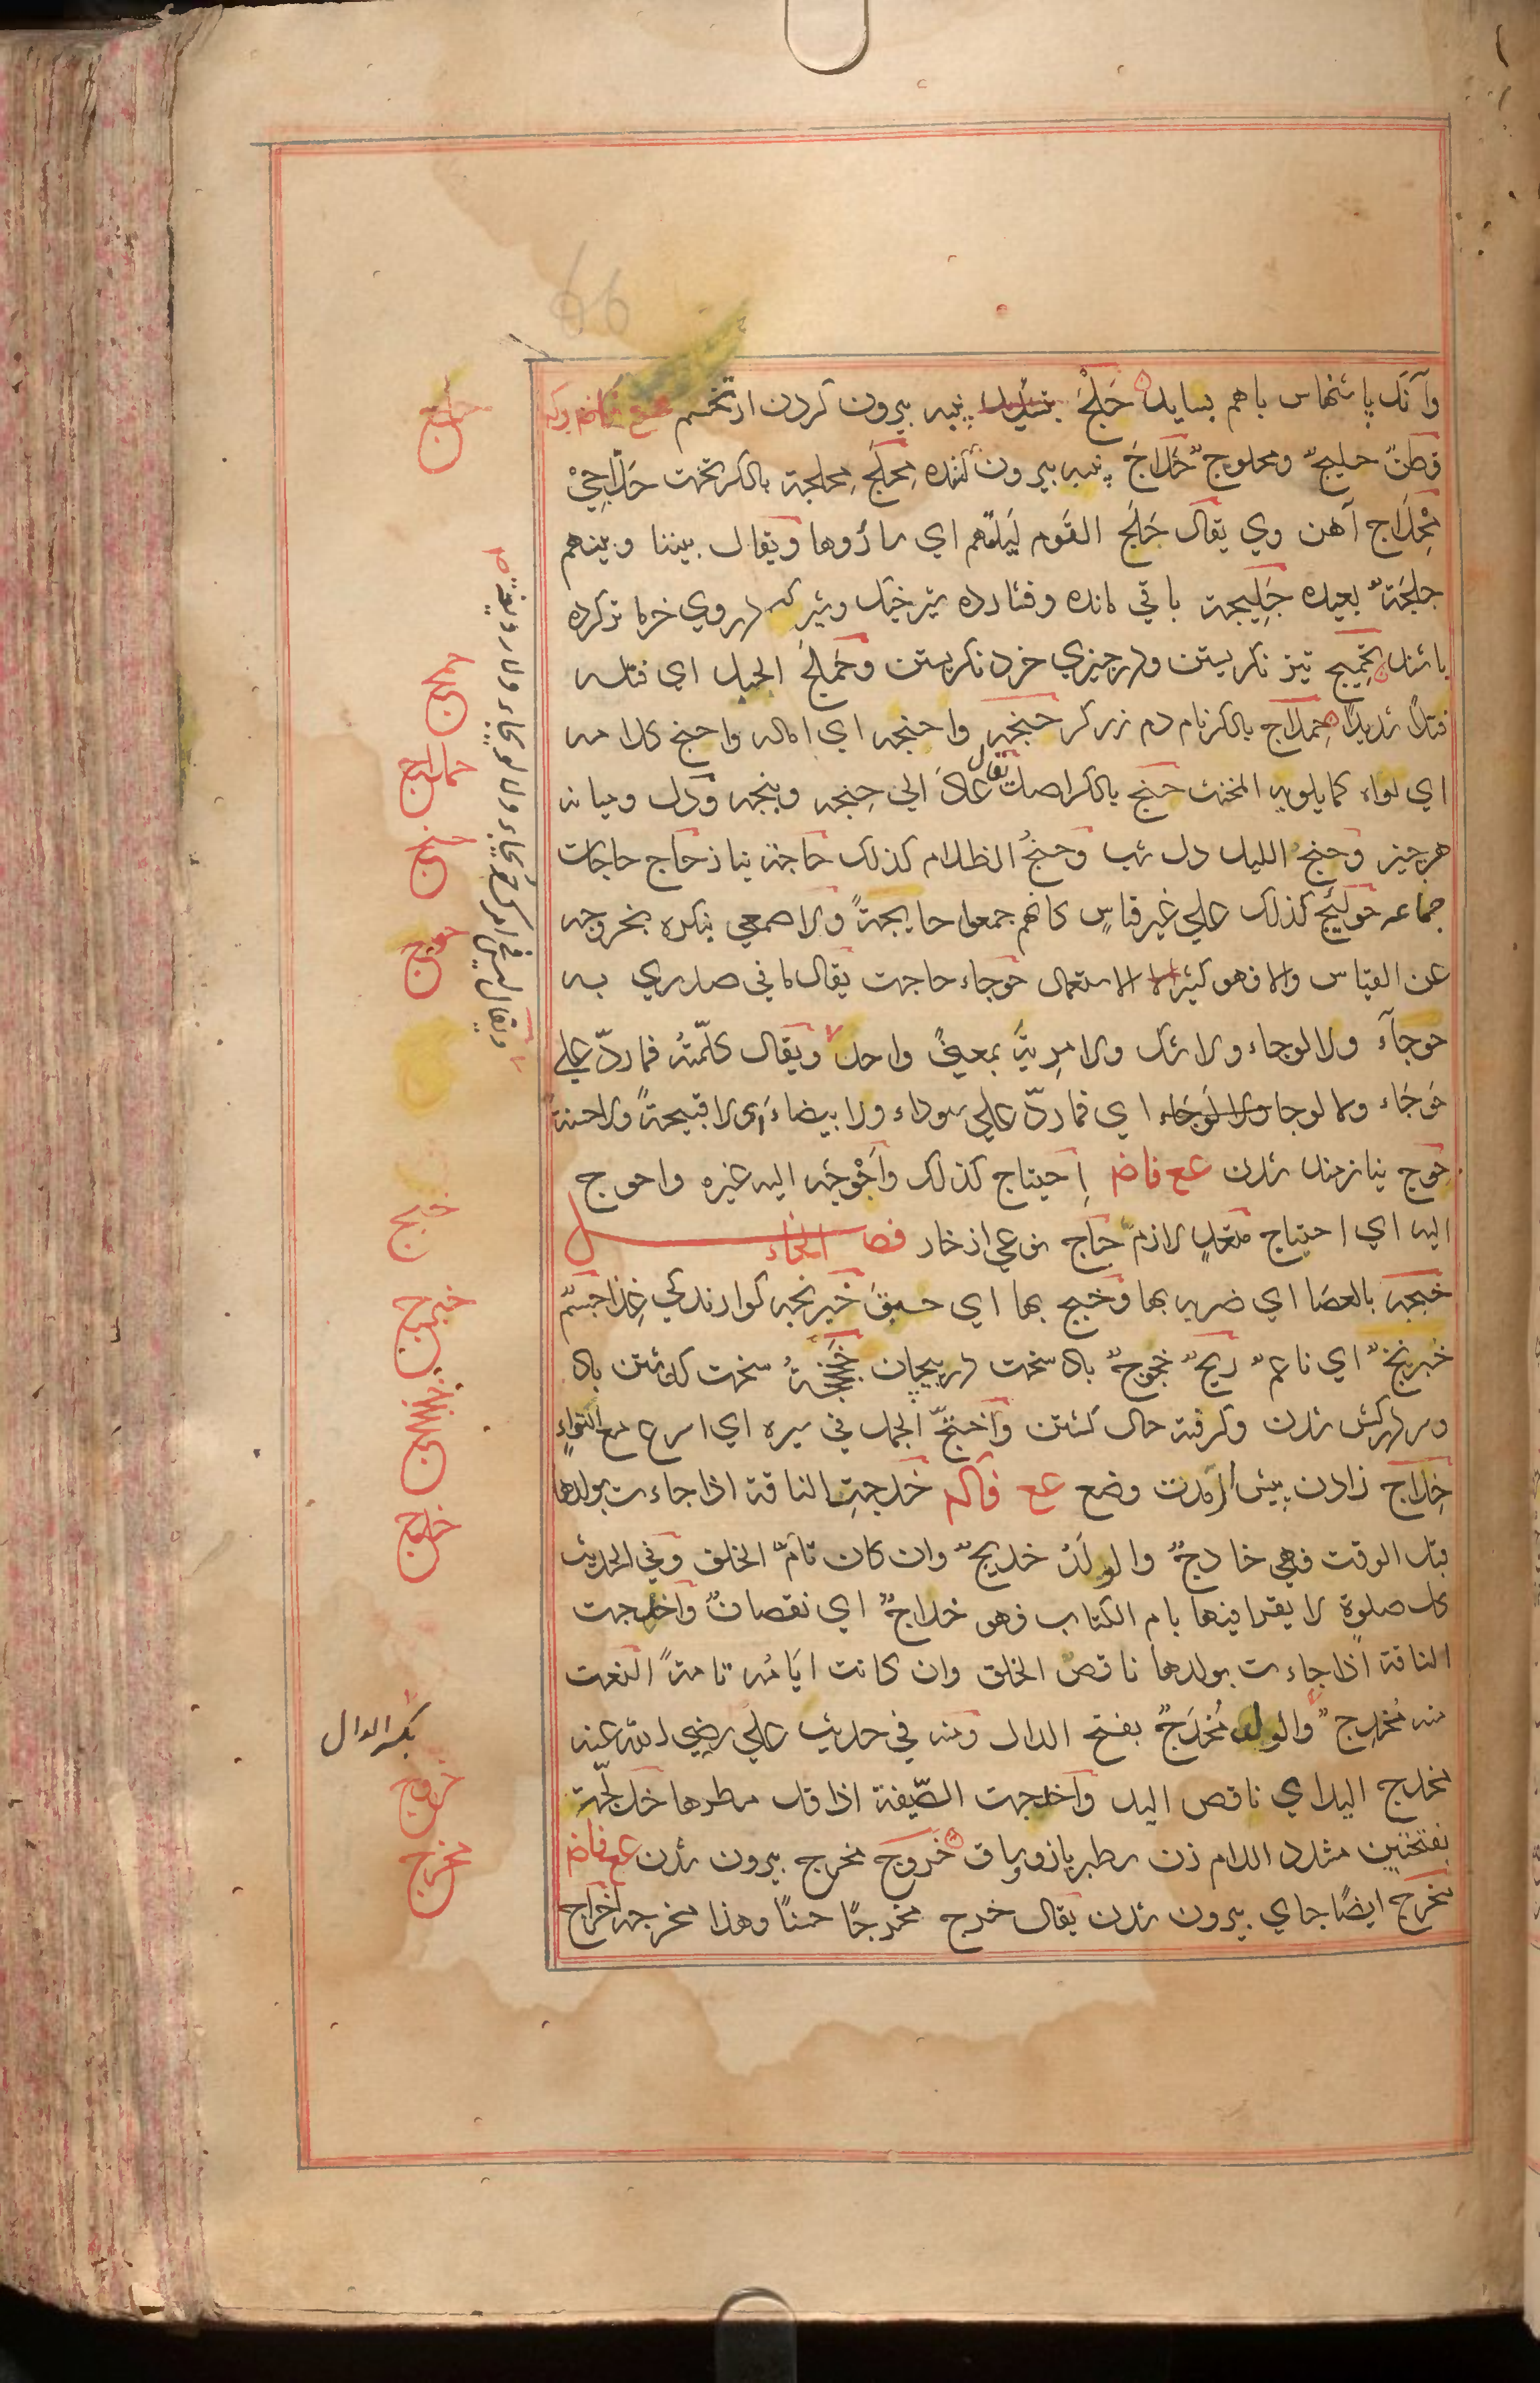 وآنکه پاشنهاش باهم بساید حَلْجٌ پنبه بیرون کردن از تخم عع فاض وکه
قطنٌ حلیجٌ ومحلوجٌ حَلّاج پنبه بیرون کننده مِحلَج مِحلجة بالکسر تخت حَلّاجی
مِحلاج آهن وی یقال حَلَج القَوم لَیلتهم ای سارُوها ویقال بیننا وبینهم
حلجَةٌ بعیده حَلِیجة باقی مانده وفشارده شیر خیک وشیر که در وی خرما تر کرده
باشند تحمیج تیز نکریستن ودر چیزی خرد نکریستن وحَملَجَ الحبل ای فتله
فتلاً شدیداً حِملاج بالکسر نام دم زرکر حنجه واحنجه ای اماله واحنج کلامه
ای لواه کما یلویه المخنث حنج بالکسر اصل یقال عادَ الی حِنجه وبنجه ودل ومیانه
هر چیز وحنجُ اللیل دل شب وحنجُ الظلام کذلک حاجة نیاز حاج حاجات
جماعه حوائج کذلک علی غیر قیاسٍ کانهم جمعوا حایجةً والاصمعی ینکره بخروجه
عن القیاس والا فهو کثیر الاستعمال حوجاء حاجت یقال ما فی صدری به
حوجآء ولا لوجاء ولا شک ولا مِریةٌ بمعنیً واحد ویقال کلّمتُه فما ردّ علی
حوجَاء ولا لوجا ای فما ردّ علی سوداء ولا بیضاء ای لا قبیحةً ولا حسنةً
حوج نیازمند شدن عع فاض اِحتیاج کذلک وأحْوَجَه الیه غیره واحوج
الیه ای احتیاج متعدٍ لازمٌ حاج نوعی از خار فصل الخاء
خبجه بالعصَا ای ضربه بها وخبج بها ای حبقَ خبرنجه کوارندکی غذا جسمٌ
خبرنجٌ ای ناعمٌ ریحٌ خجوجٌ باد سخت در پیچان خجخجةُ سخت کذشتن باد
ودر کش شدن وکرفته حال کشتن واختجّ الجمل فی سیره ای اسرع مع التواءٍ
خِداج زادن پیش از مدت وضع عع فآله خدجتِ الناقة اذا جاءت بولدها
قبل الوقت فهی خادجٌ والولَدُ خدیجٌ وان کان تامّ الخلق وفی الحدیث
کل صلوة لا یقرا فیها بام الکتاب فهو خداجٌ ای نقصانٌ واخدجت
الناقة اذا جاءت بولدها ناقص الخلق وان کانت ایَامُه تامةً النعت
منه مُخدِجٌ والولد مُخدَجٌ بفتح الدال ومنه فی حدیث علی رضی الله عنه
مخدج الید ای ناقص الید واخدجت الصّیفة اذا قل مطرها خَدَلّجة
بفتحتین مشدد اللام زن سطبر بازو وساق خروج مخرج بیرون شدن عع فاض
مخرج ایضًا جای بیرون شدن یقال خرج مخرجًا حسنًا وهذا مخرجه اخراج
حلج
حملج
حنج
حوج
خبج
خبرج
خدج
بکسر الدال
خروج
مخرج